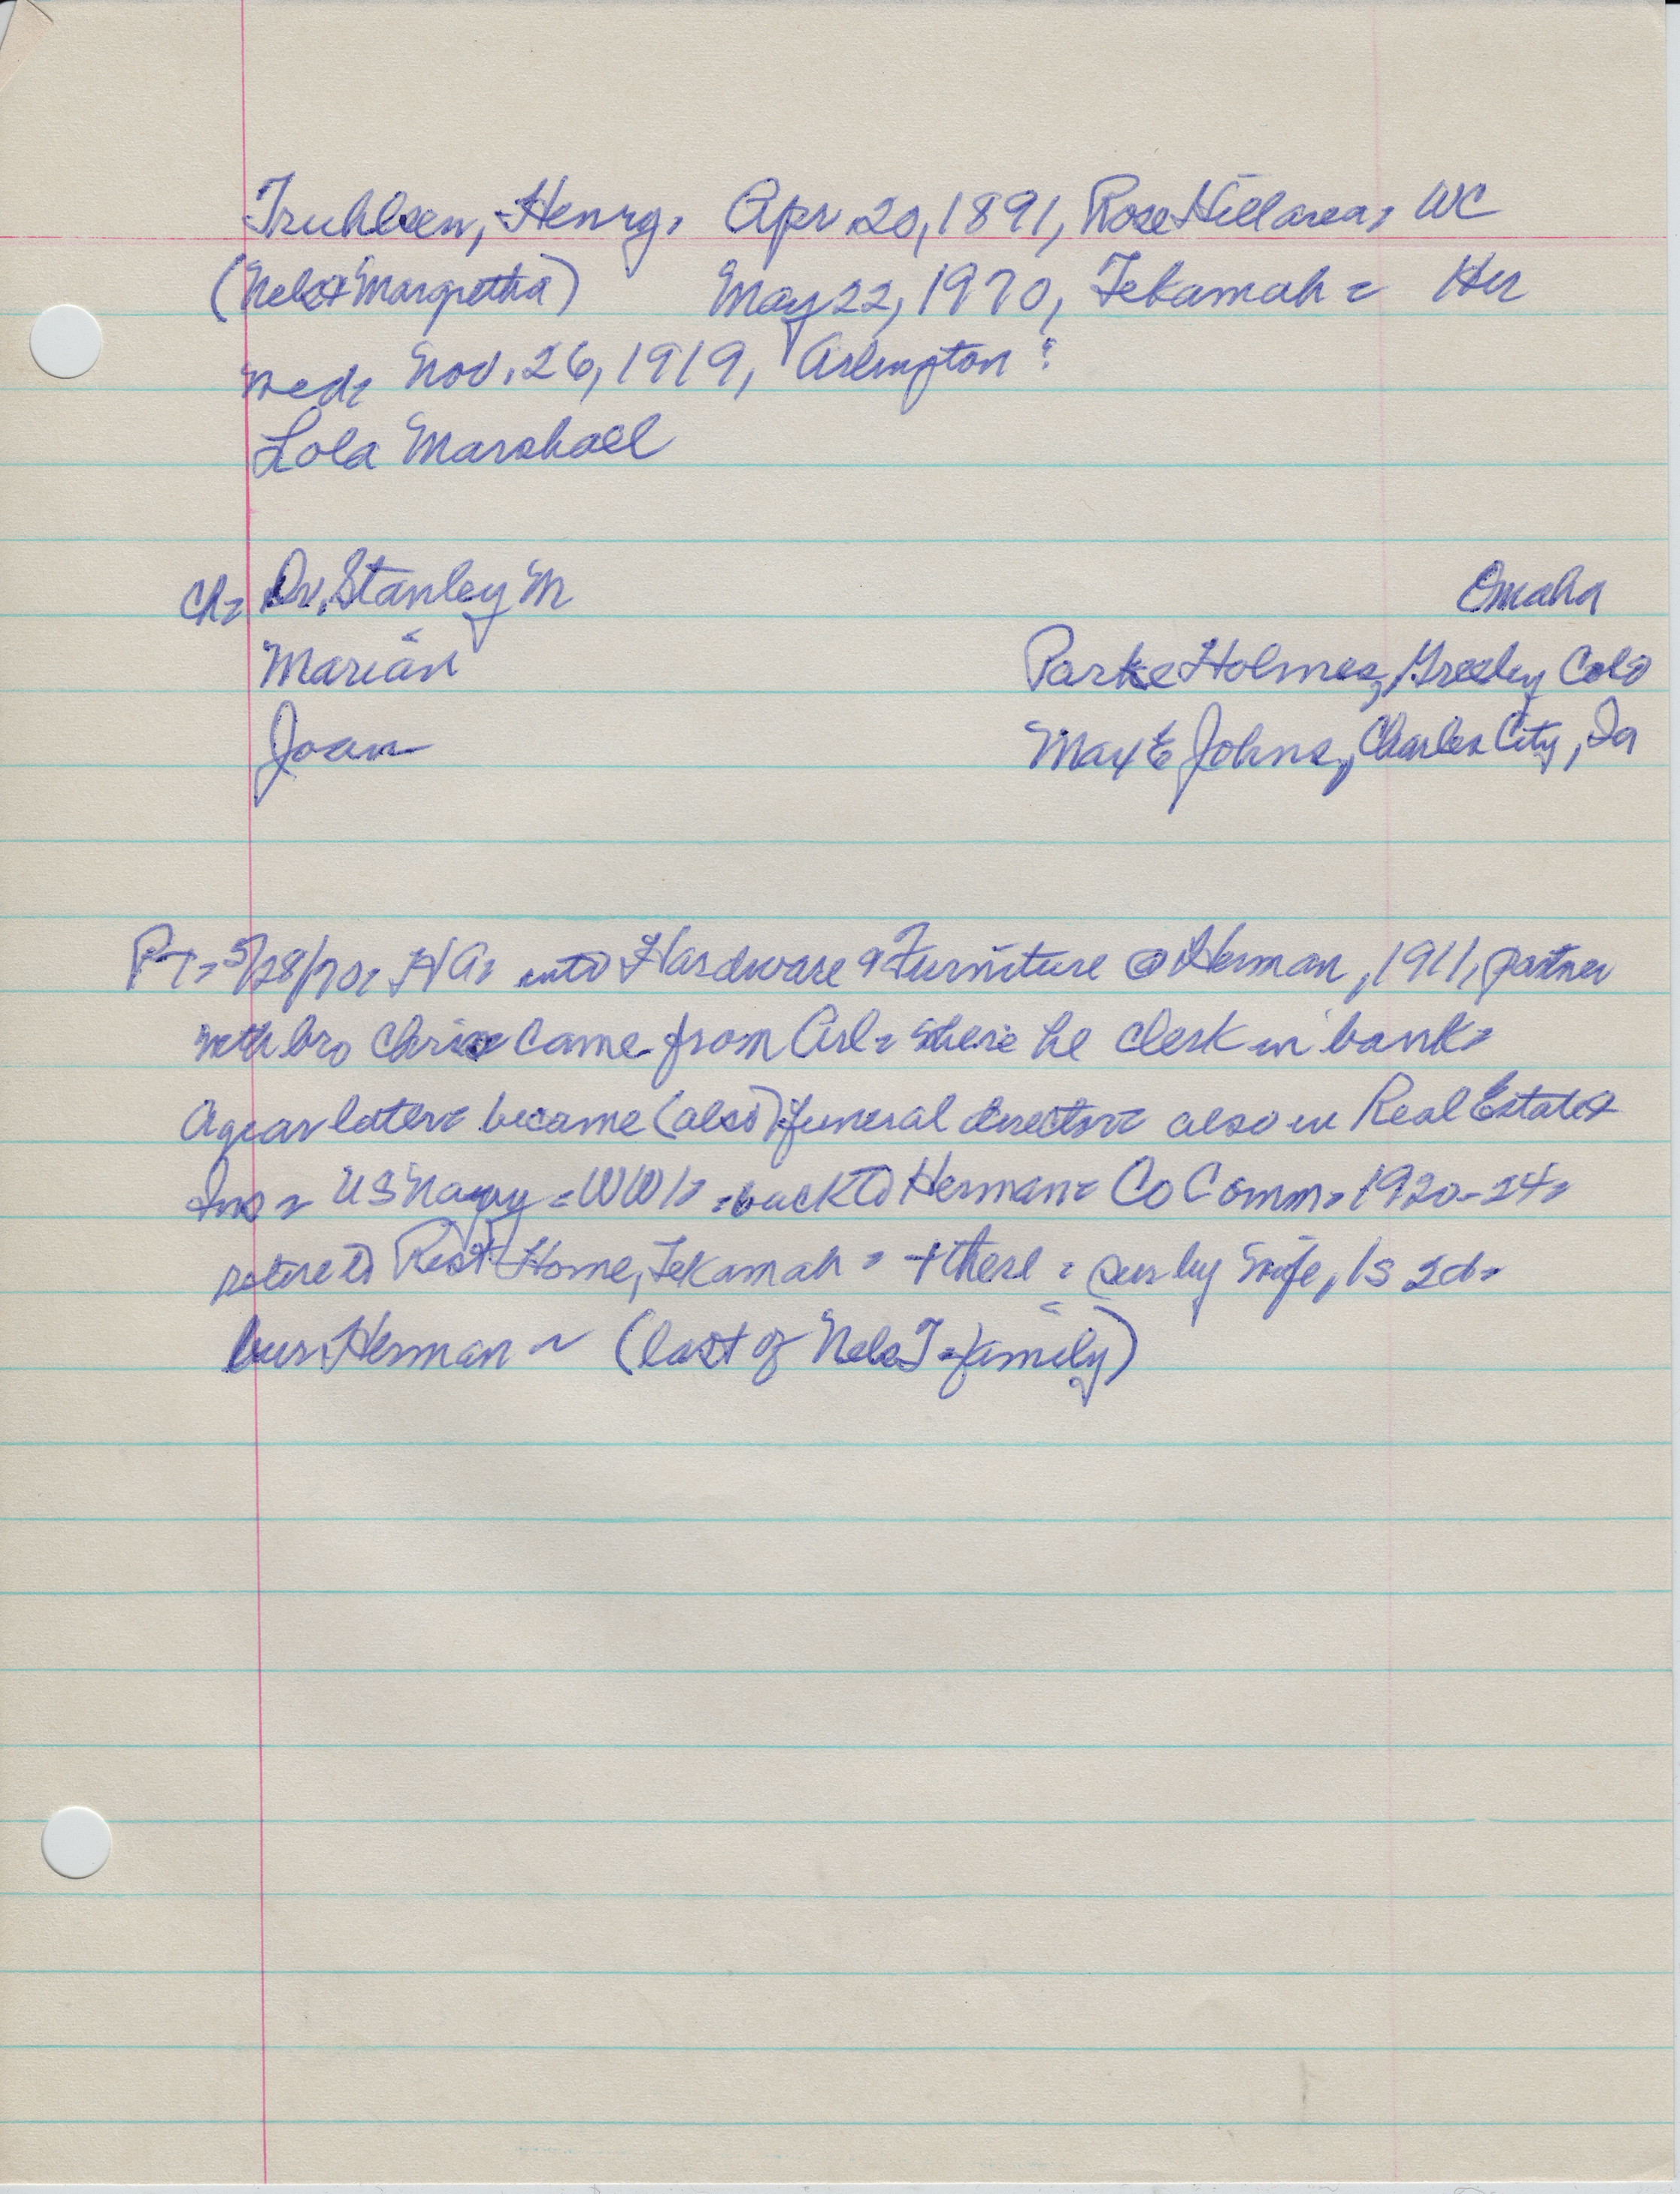 Truhlsen, Henry, Apr 20, 1891, Rose Hill area, WC
(Nels & Margretha) May 22, 1970, Tekamah = Her
med, Nov. 26, 1919, Arlington:
Lola Marshall
Ch= Dr. Stanley M Omaha
Marian Parke Holmes, Greeley Colo
Joan Max E Johns, Charles City, Ia
PT= 5/28/70, HA, into Hardware & Furniture @ Herman, 1911, partner
with bro Chris Came from Arl= where he clerk in bank=
A year later= became (also) funeral director= also in Real Estate &
Ins = US Navy = WW1= back to Herman= Co Comm= 1920-24=
retire to Rest Home, Tekamah = + there = sur by wife, 1s 2d=
bur. Herman ~ (last of Nels T= family)